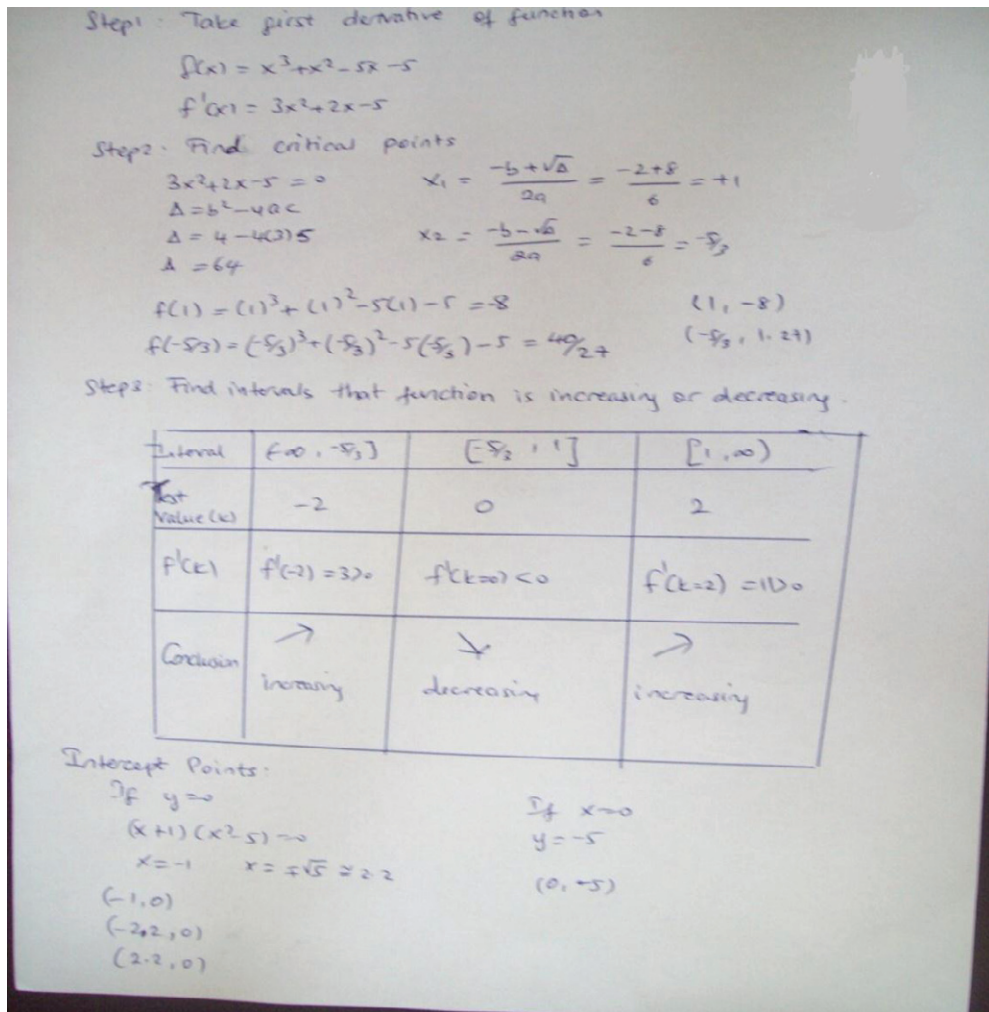 Step1: Take first derivative of function
f(x) = x³+x²-5x-5
f'(x) = 3x²+2x-5
Step2. Find critical points
3x²+2x-5 = 0
Δ=b²-4ac
Δ = 4-4(3)5
Δ = 64
x₁ = (-b+√Δ)/2a = (-2+8)/6 = +1
x2 = (-b-√Δ)/2a = (-2-8)/6 = -5/3
f(1) = (1)³+(1)²-5(1)-5 = -8 (1, -8)
f(-5/3) = (-5/3)³+(-5/3)²-5(-5/3)-5 = 40/27 (-5/3, 1.27)
Step3: Find intervals that function is increasing or decreasing.
Interval (-∞, -5/3] [-5/3, 1] [1, ∞)
Test value (k) -2 0 2
f'(k) f'(-2) = 3>0 f'(k=0) <0 f'(k=2) = 11>0
Conclusion ↗ increasing ↘ decreasing ↗ increasing
Intercept Points:
If y=0
(x+1)(x²-5)=0
x=-1 x=∓√5 ≅ 2.2
(-1,0)
(-2.2,0)
(2.2,0)
If x=0
y=-5
(0,-5)